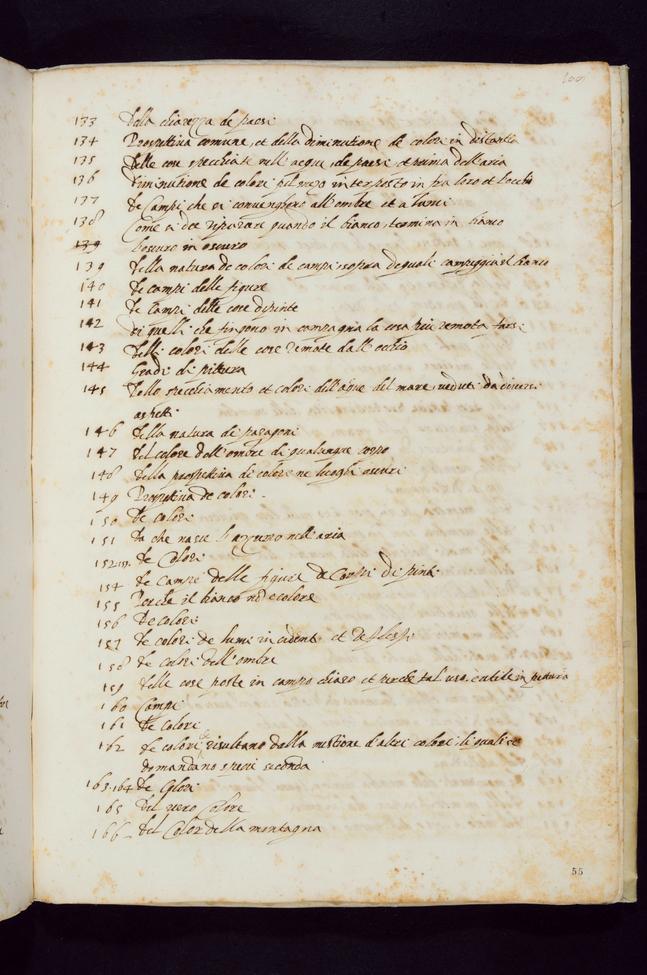 100
133 della chiarezza de paesi
134 Prospettiva comune, et della diminutione de colori in distantia
135 delle cose specchiate nell'acque, de paesi, et prima dell'aria
136 diminutione de colori pel mezo interposto in fra loro et l'occhio
137 de Campi che si convengono all'ombre et a lumi
138 Come si dee riparare quando il bianco, termina in bianco
139 l'oscuro in oscuro
139 della natura de colori de campi sopra de quali campeggia il bianco
140 de campi delle figure
141 de campi delle cose dipinte
142 di quelli che fingono in campagna la cosa piu remota farsi
143 delli colori delle cose remote dall'occhio
144 Gradi di pittura
145 dello specchiamento et colore dell'acque del mare, veduti da diversi
aspetti
146 della natura de paragoni
147 del colore dell'ombre di qualunque corpo
148 della prospettiva de colori ne luoghi oscuri
149 Prospettiva de colori.
150 de colori
151 da che nasce l'azzurro nell'aria
152.153. de Colori
154 de campi delle figure de Corpi dipinti
155 Perche il bianco nō e colore
156 De colori
157 de colori de lumi incidenti et reflessi
158 de colori dell'ombre
159 delle cose poste in campo chiaro et perche tal uso e utile in pittura
160 Campi
161 de Colori
162 de colori che risultano dalla mistione d'altri colori, li quali si
domandano specie seconda
163.164 de Colori
165 del vero Colore
166 del Color della montagna
55